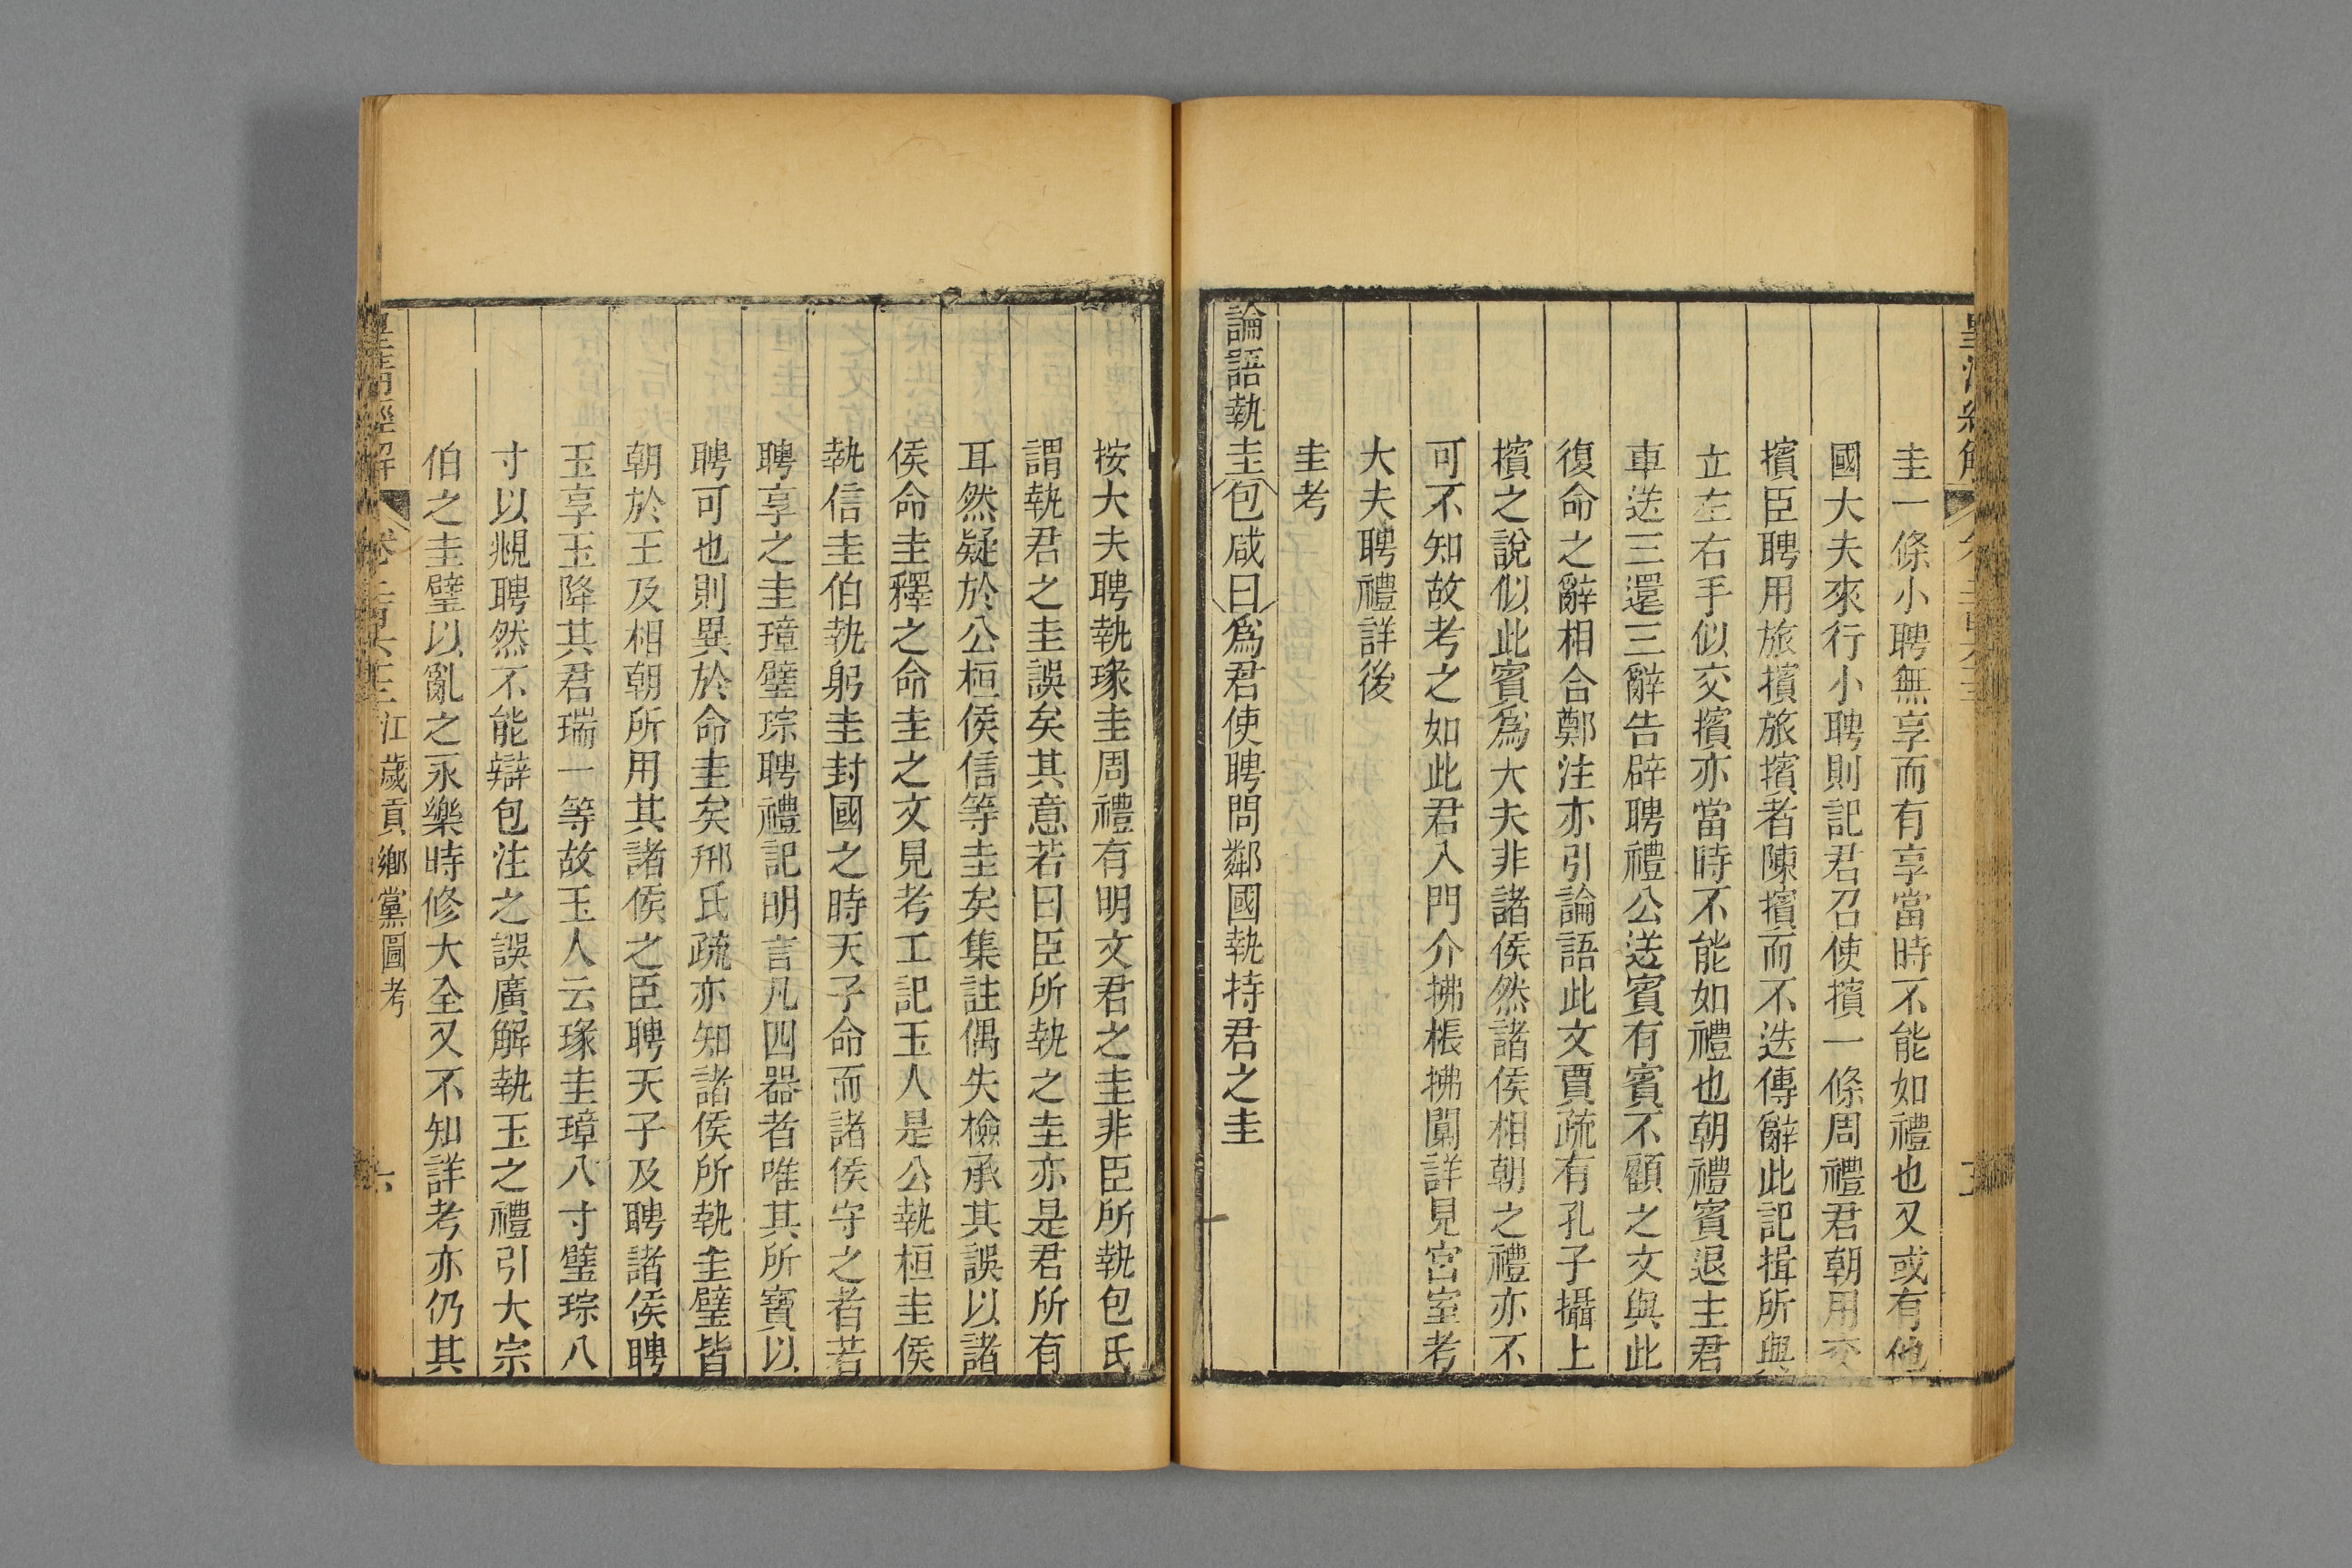 圭一條小聘無享而有享當時不能如禮也又或有他
國大夫來行小聘則記君召使擯一條周禮君朝用交
擯臣聘用旅擯旅擯者陳擯而不迭傳辭此記揖所與
立左右手似交擯亦當時不能如禮也朝禮賓退主君
車送三還三辭告辟聘禮公送賓有賓不顧之文與此
復命之辭相合鄭注亦引論語此文賈疏有孔子攝上
擯之說似此賓爲大夫非諸侯然諸侯相朝之禮亦不
可不知故考之如此君入門介拂棖拂闑詳見宮室考
大夫聘禮詳後
圭考
論語執圭包咸曰爲君使聘問鄰國執持君之圭
按大夫聘執瑑圭周禮有明文君之圭非臣所執包氏
謂執君之圭誤矣其意若曰臣所執之圭亦是君所有
耳然疑於公桓侯信等圭矣集註偶失檢承其誤以諸
侯命圭釋之命圭之文見考工記玉人是公執桓圭侯
執信圭伯執躬圭封國之時天子命而諸侯守之者若
聘享之圭璋璧琮聘禮記明言凡四器者唯其所寶以
聘可也則異於命圭矣邢氏疏亦知諸侯所執圭璧皆
朝於王及相朝所用其諸侯之臣聘天子及聘諸侯聘
玉享玉降其君瑞一等故玉人云瑑圭璋八寸璧琮八
寸以覜聘然不能辯包注之誤廣解執玉之禮引大宗
伯之圭璧以亂之永樂時修大全又不知詳考亦仍其
皇清經解 卷二百六十三 江歲貢鄉黨圖考 六